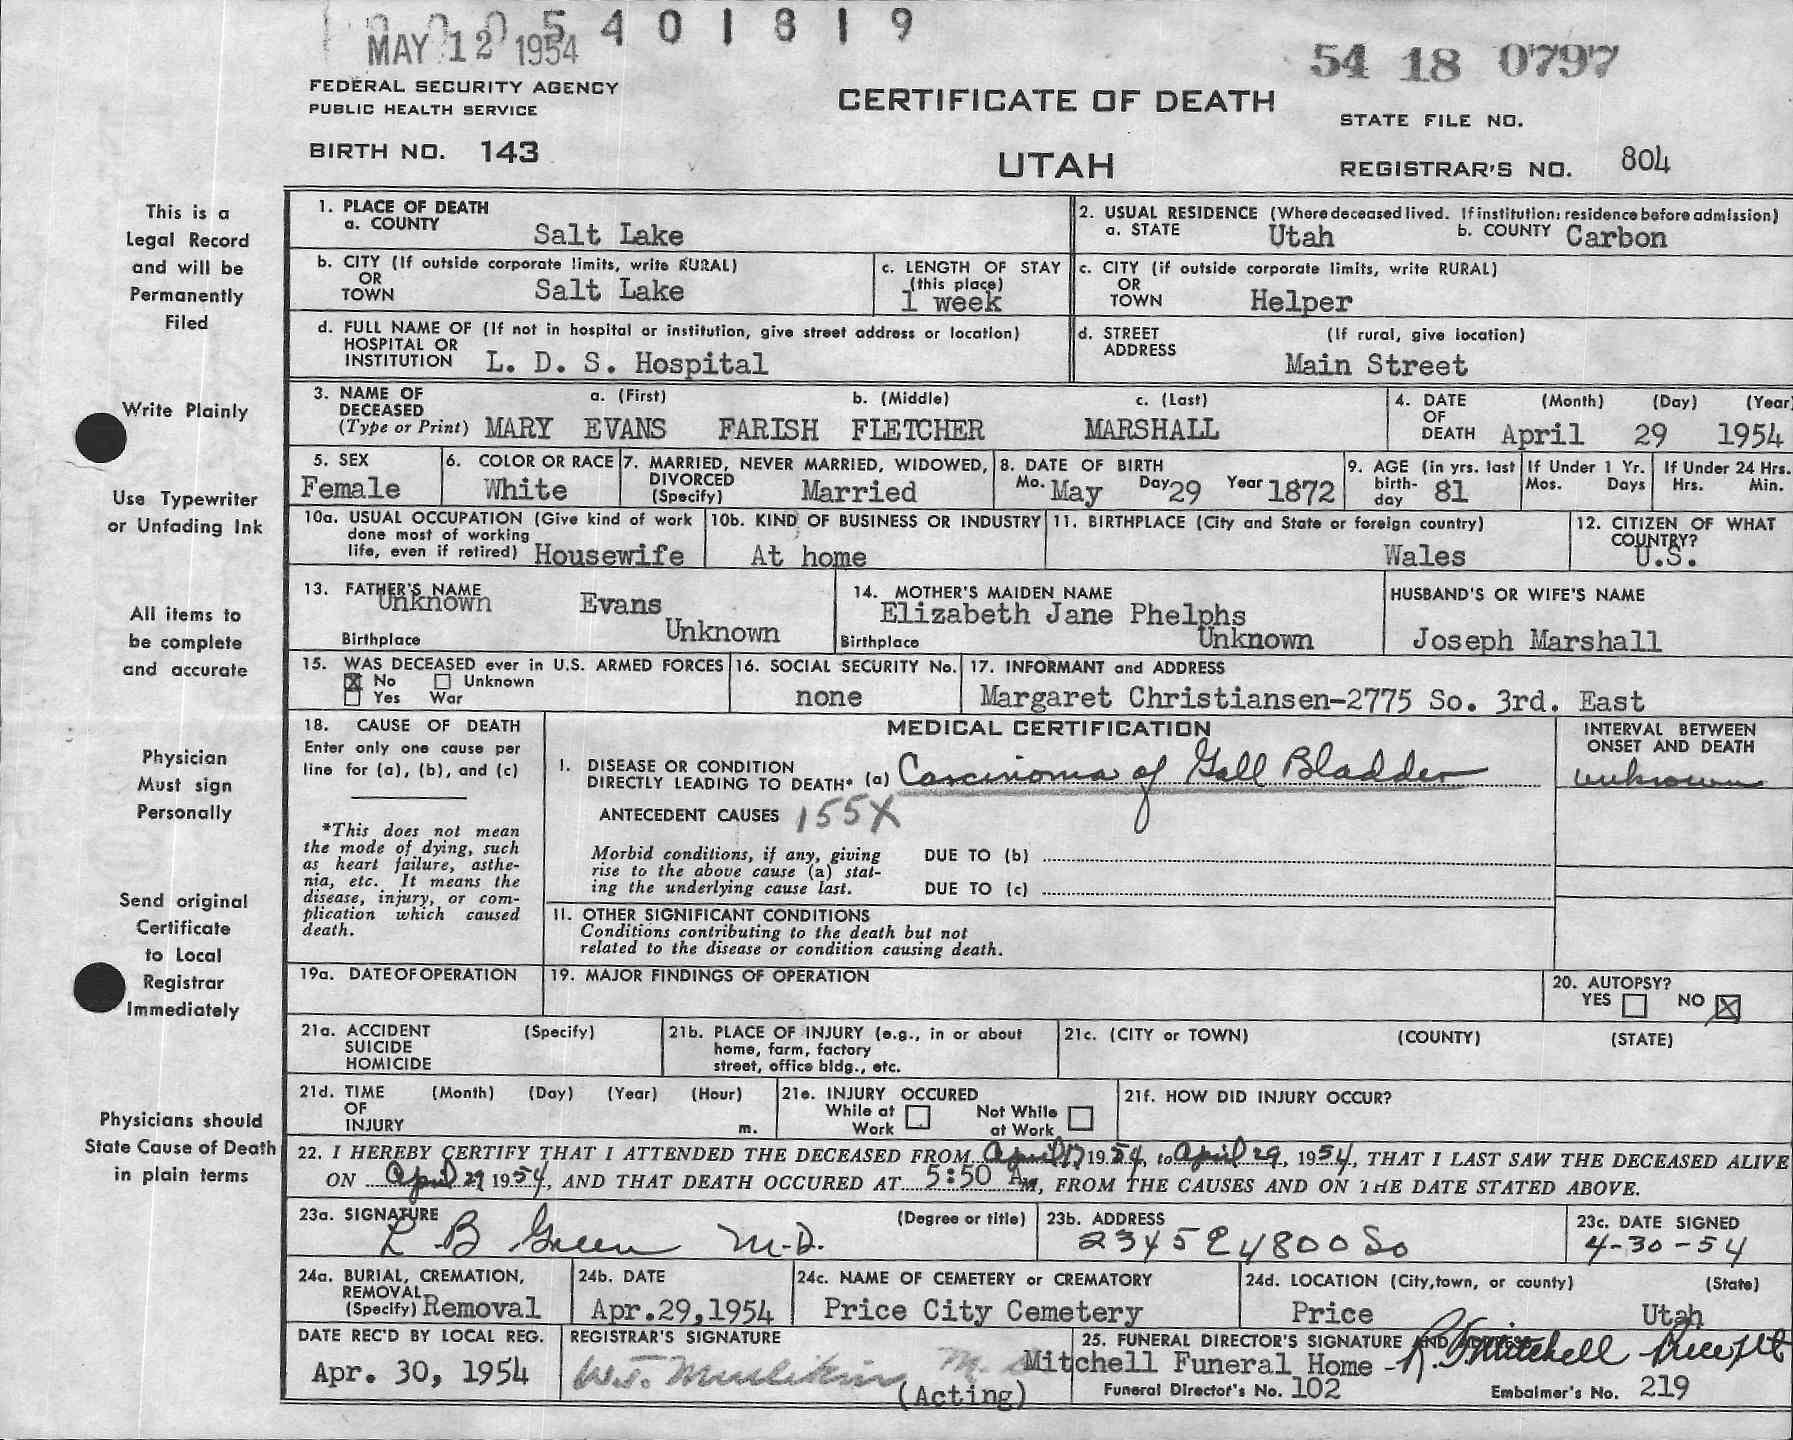 5401819
MAY 12 1954
54 18 0797
FEDERAL SECURITY AGENCY
PUBLIC HEALTH SERVICE
CERTIFICATE OF DEATH
STATE FILE NO.
BIRTH NO. 143
UTAH
REGISTRAR'S NO. 804
This is a
Legal Record
and will be
Permanently
Filed
Write Plainly
Use Typewriter
or Unfading Ink
All items to
be complete
and accurate
Physician
Must sign
Personally
Send original
Certificate
to Local
Registrar
Immediately
Physicians should
State Cause of Death
in plain terms
1. PLACE OF DEATH
a. COUNTY Salt Lake
2. USUAL RESIDENCE (Where deceased lived. If institution: residence before admission)
a. STATE Utah b. COUNTY Carbon
b. CITY (If outside corporate limits, write RURAL)
OR
TOWN Salt Lake
c. LENGTH OF STAY
(this place)
1 week
c. CITY (if outside corporate limits, write RURAL)
OR
TOWN Helper
d. FULL NAME OF (If not in hospital or institution, give street address or location)
HOSPITAL OR
INSTITUTION L. D. S. Hospital
d. STREET (If rural, give location)
ADDRESS
Main Street
3. NAME OF a. (First) b. (Middle) c. (Last)
DECEASED
(Type or Print) MARY EVANS FARISH FLETCHER MARSHALL
4. DATE (Month) (Day) (Year)
OF
DEATH April 29 1954
5. SEX
Female
6. COLOR OR RACE
White
7. MARRIED, NEVER MARRIED, WIDOWED,
DIVORCED
(Specify) Married
8. DATE OF BIRTH
Mo. May Day 29 Year 1872
9. AGE (in yrs. last
birth-
day 81
If Under 1 Yr.
Mos. Days
If Under 24 Hrs.
Hrs. Min.
10a. USUAL OCCUPATION (Give kind of work
done most of working
life, even if retired) Housewife
10b. KIND OF BUSINESS OR INDUSTRY
At home
11. BIRTHPLACE (City and State or foreign country)
Wales
12. CITIZEN OF WHAT
COUNTRY?
U.S.
13. FATHER'S NAME
Unknown Evans
Birthplace Unknown
14. MOTHER'S MAIDEN NAME
Elizabeth Jane Phelphs
Birthplace Unknown
HUSBAND'S OR WIFE'S NAME
Joseph Marshall
15. WAS DECEASED ever in U.S. ARMED FORCES
No Unknown
Yes War
16. SOCIAL SECURITY No.
none
17. INFORMANT and ADDRESS
Margaret Christiansen-2775 So. 3rd. East
18. CAUSE OF DEATH
Enter only one cause per
line for (a), (b), and (c)
*This does not mean
the mode of dying, such
as heart failure, asthe-
nia, etc. It means the
disease, injury, or com-
plication which caused
death.
MEDICAL CERTIFICATION
INTERVAL BETWEEN
ONSET AND DEATH
I. DISEASE OR CONDITION
DIRECTLY LEADING TO DEATH* (a) Carcinoma of Gall Bladder
unknown
ANTECEDENT CAUSES 155X
Morbid conditions, if any, giving
rise to the above cause (a) stat-
ing the underlying cause last.
DUE TO (b)
DUE TO (c)
II. OTHER SIGNIFICANT CONDITIONS
Conditions contributing to the death but not
related to the disease or condition causing death.
19a. DATE OF OPERATION
19. MAJOR FINDINGS OF OPERATION
20. AUTOPSY?
YES NO
21a. ACCIDENT (Specify)
SUICIDE
HOMICIDE
21b. PLACE OF INJURY (e.g., in or about
home, farm, factory
street, office bldg., etc.
21c. (CITY or TOWN) (COUNTY) (STATE)
21d. TIME (Month) (Day) (Year) (Hour)
OF
INJURY m.
21e. INJURY OCCURED
While at Work Not While at Work
21f. HOW DID INJURY OCCUR?
22. I HEREBY CERTIFY THAT I ATTENDED THE DECEASED FROM April 17 1954, to April 29, 1954, THAT I LAST SAW THE DECEASED ALIVE
ON April 29 1954, AND THAT DEATH OCCURED AT 5:50 A M, FROM THE CAUSES AND ON THE DATE STATED ABOVE.
23a. SIGNATURE (Degree or title)
L B Green M.D.
23b. ADDRESS
2345 E 4800 So
23c. DATE SIGNED
4-30-54
24a. BURIAL, CREMATION,
REMOVAL
(Specify) Removal
24b. DATE
Apr.29,1954
24c. NAME OF CEMETERY or CREMATORY
Price City Cemetery
24d. LOCATION (City, town, or county) (State)
Price Utah
DATE REC'D BY LOCAL REG.
Apr. 30, 1954
REGISTRAR'S SIGNATURE
(Acting)
25. FUNERAL DIRECTOR'S SIGNATURE
Mitchell Funeral Home
Funeral Director's No. 102
Embalmer's No. 219